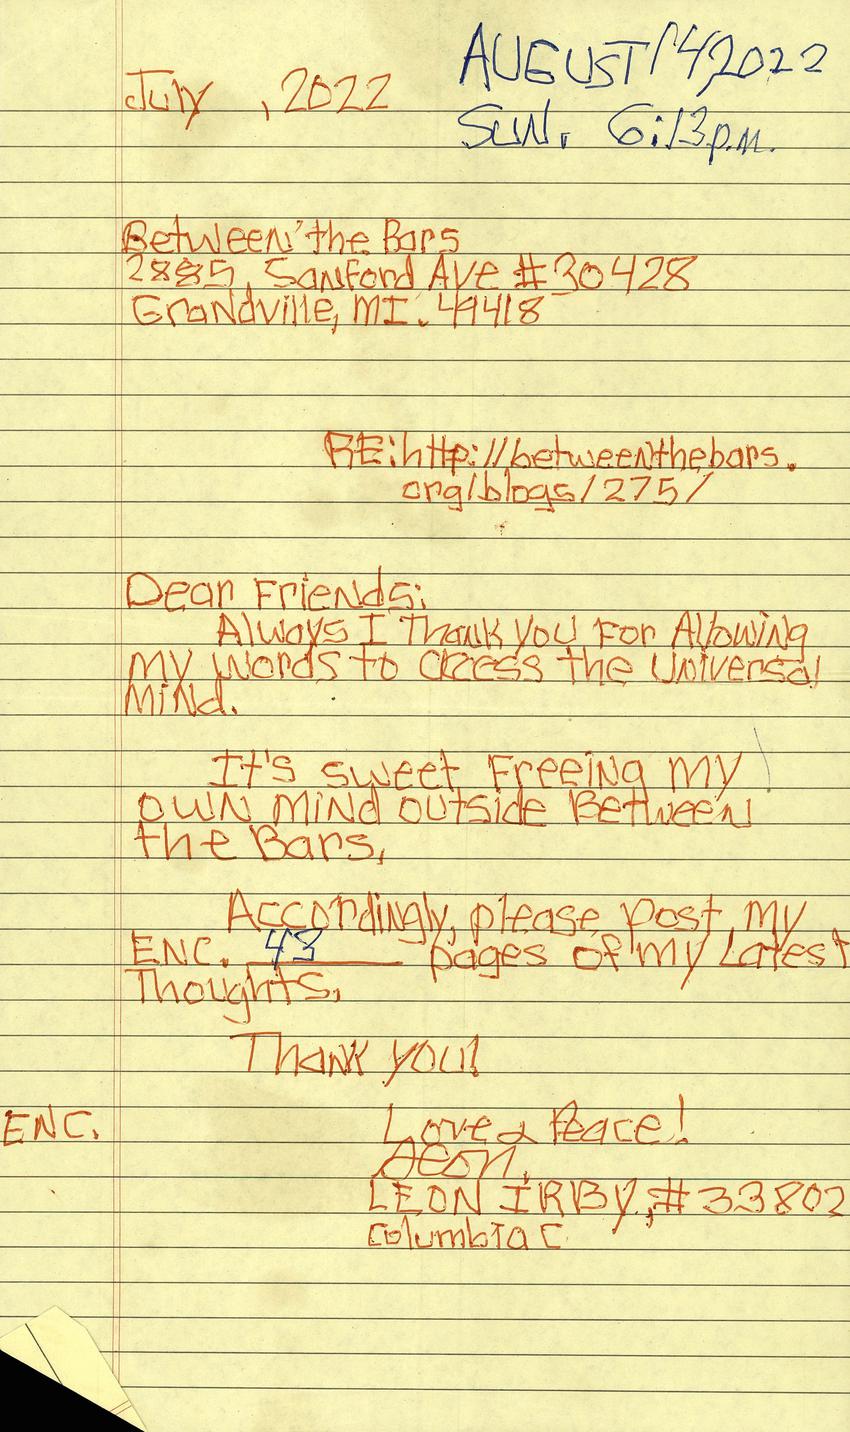 AUGUST 14, 2022
July , 2022
SUN. 6:13 p.m.
Between the Bars
2885, Sanford Ave #30428
Grandville, MI. 49418
RE: http://betweenthebars.
org/blogs/275/
Dear Friends:
Always I Thank you For Allowing
my words to access the Universal
Mind.
It's sweet Freeing my
own mind outside Between
the Bars.
Accordingly, please post my
ENC. 43 pages of my Latest
Thoughts.
Thank you!
ENC.
Love & Peace!
Leon,
LEON IRBY, #33802
Columbia C